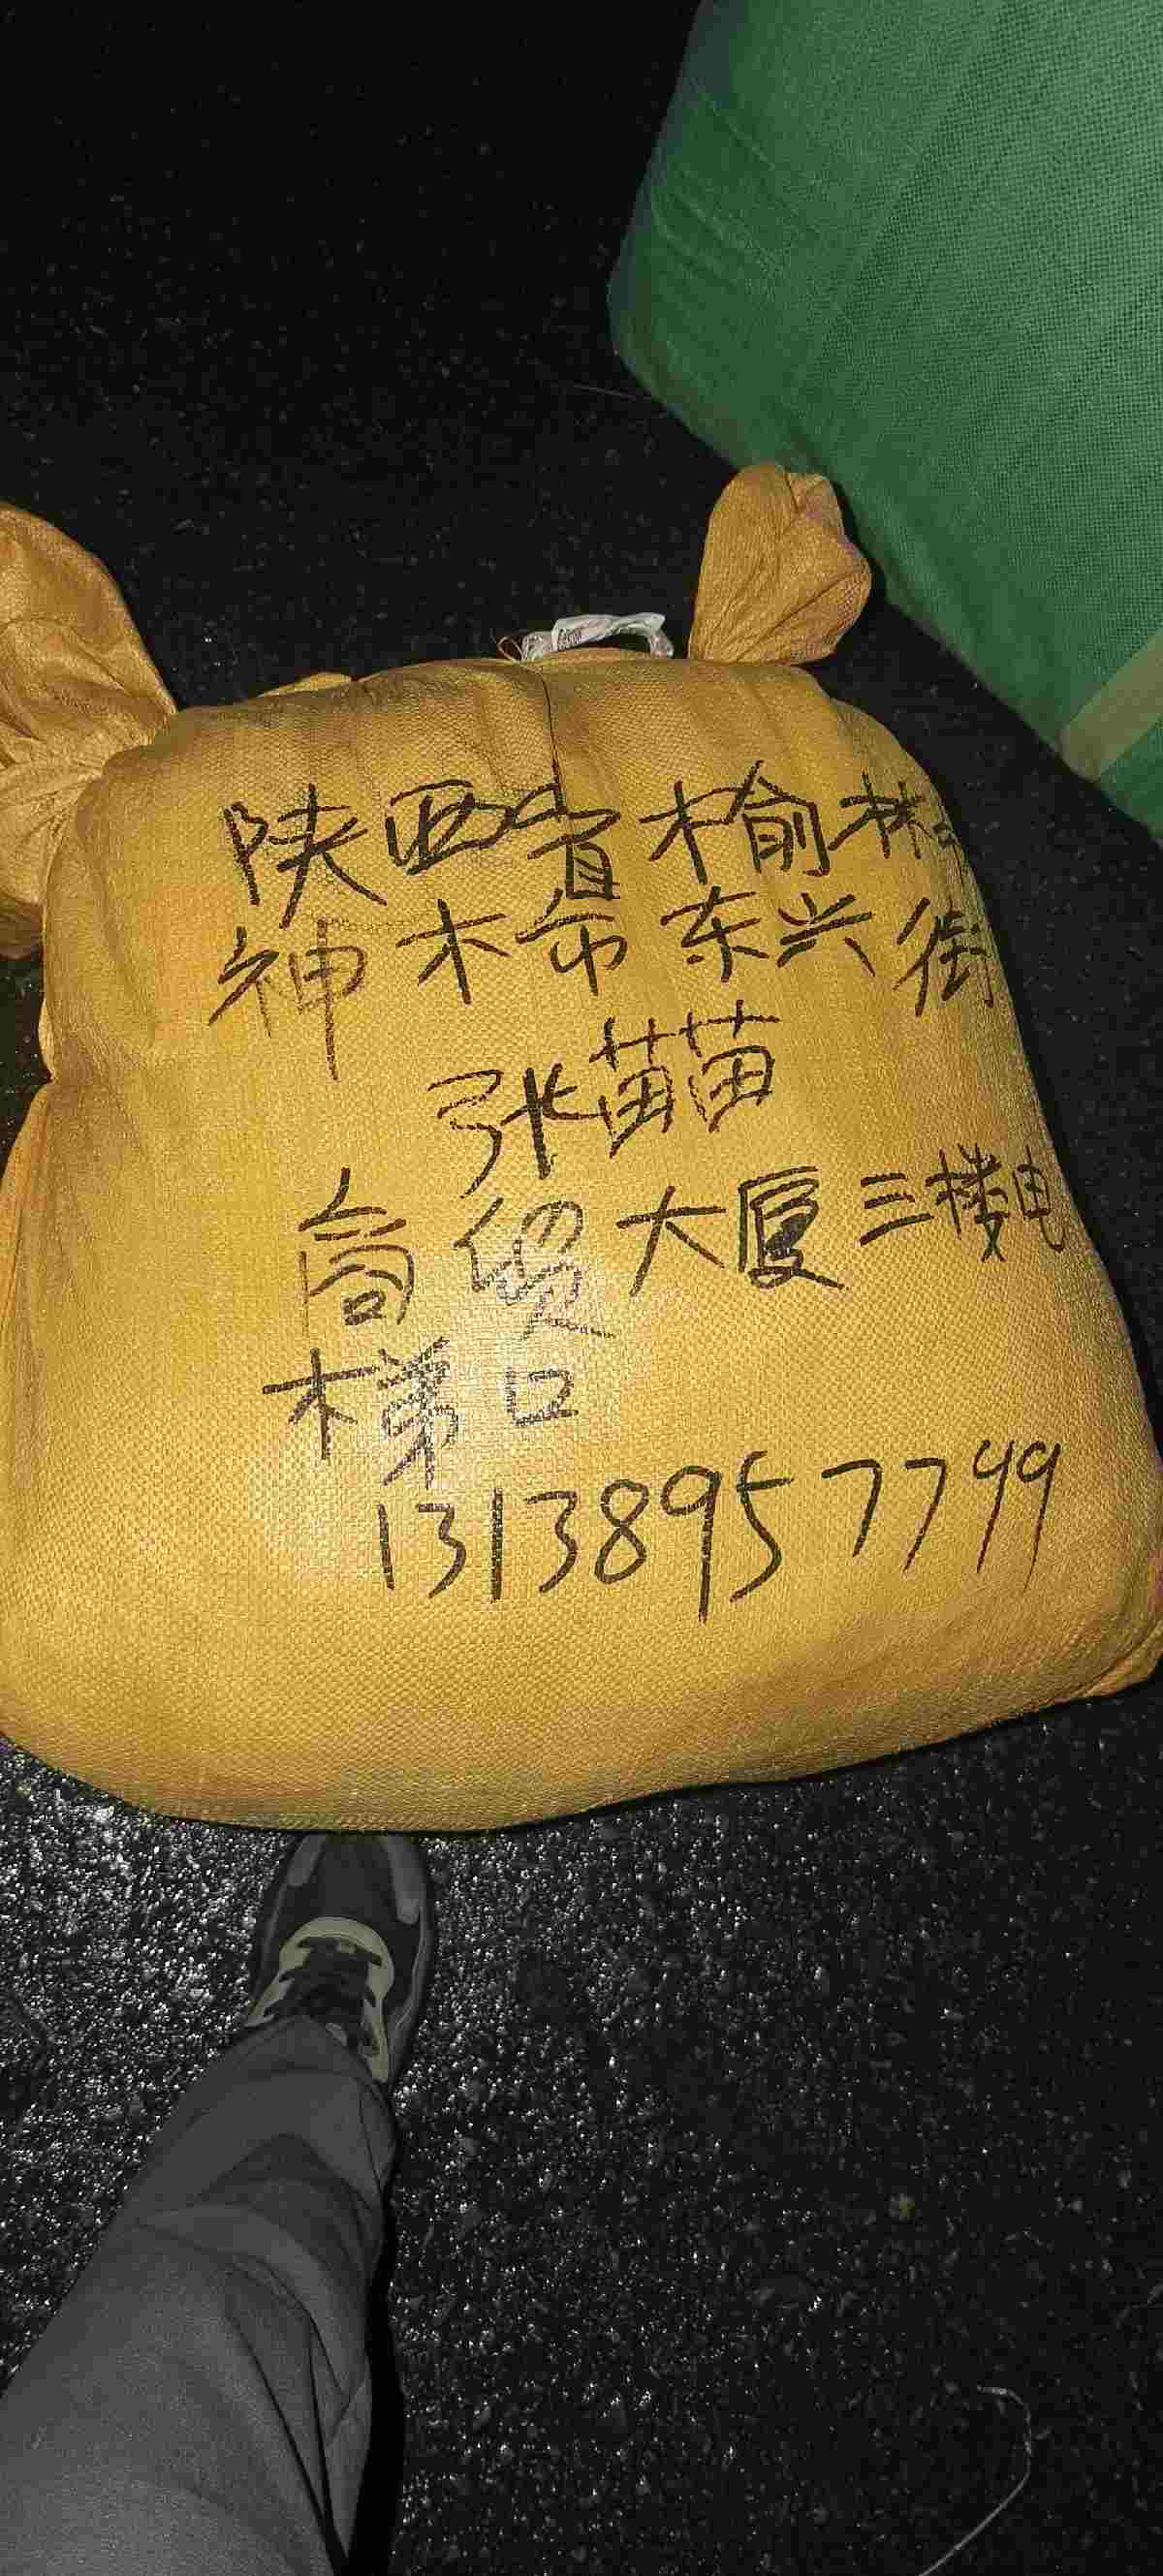 陕西省榆林
神木市东兴街
张苗苗
商贸大厦三楼电
梯口
13138957799